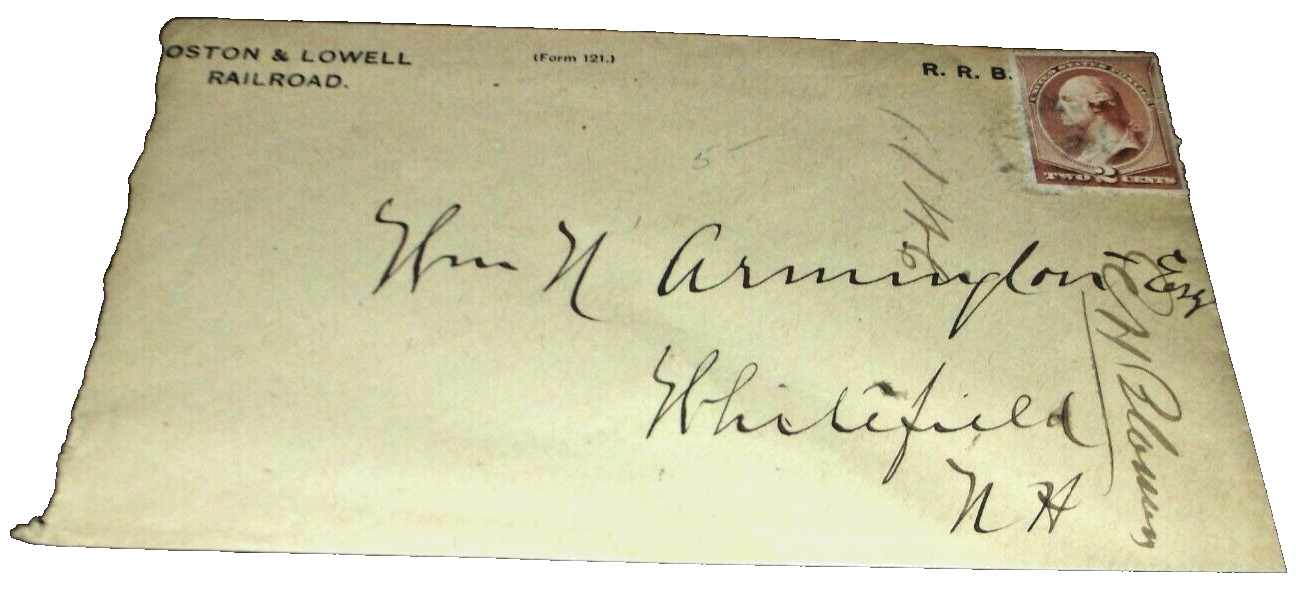 OSTON & LOWELL
RAILROAD.
(Form 121.)
R. R. B.
UNITED STATES POSTAGE
TWO 2 CENTS
5
Wm N Armington Esq
Whitefield
N H